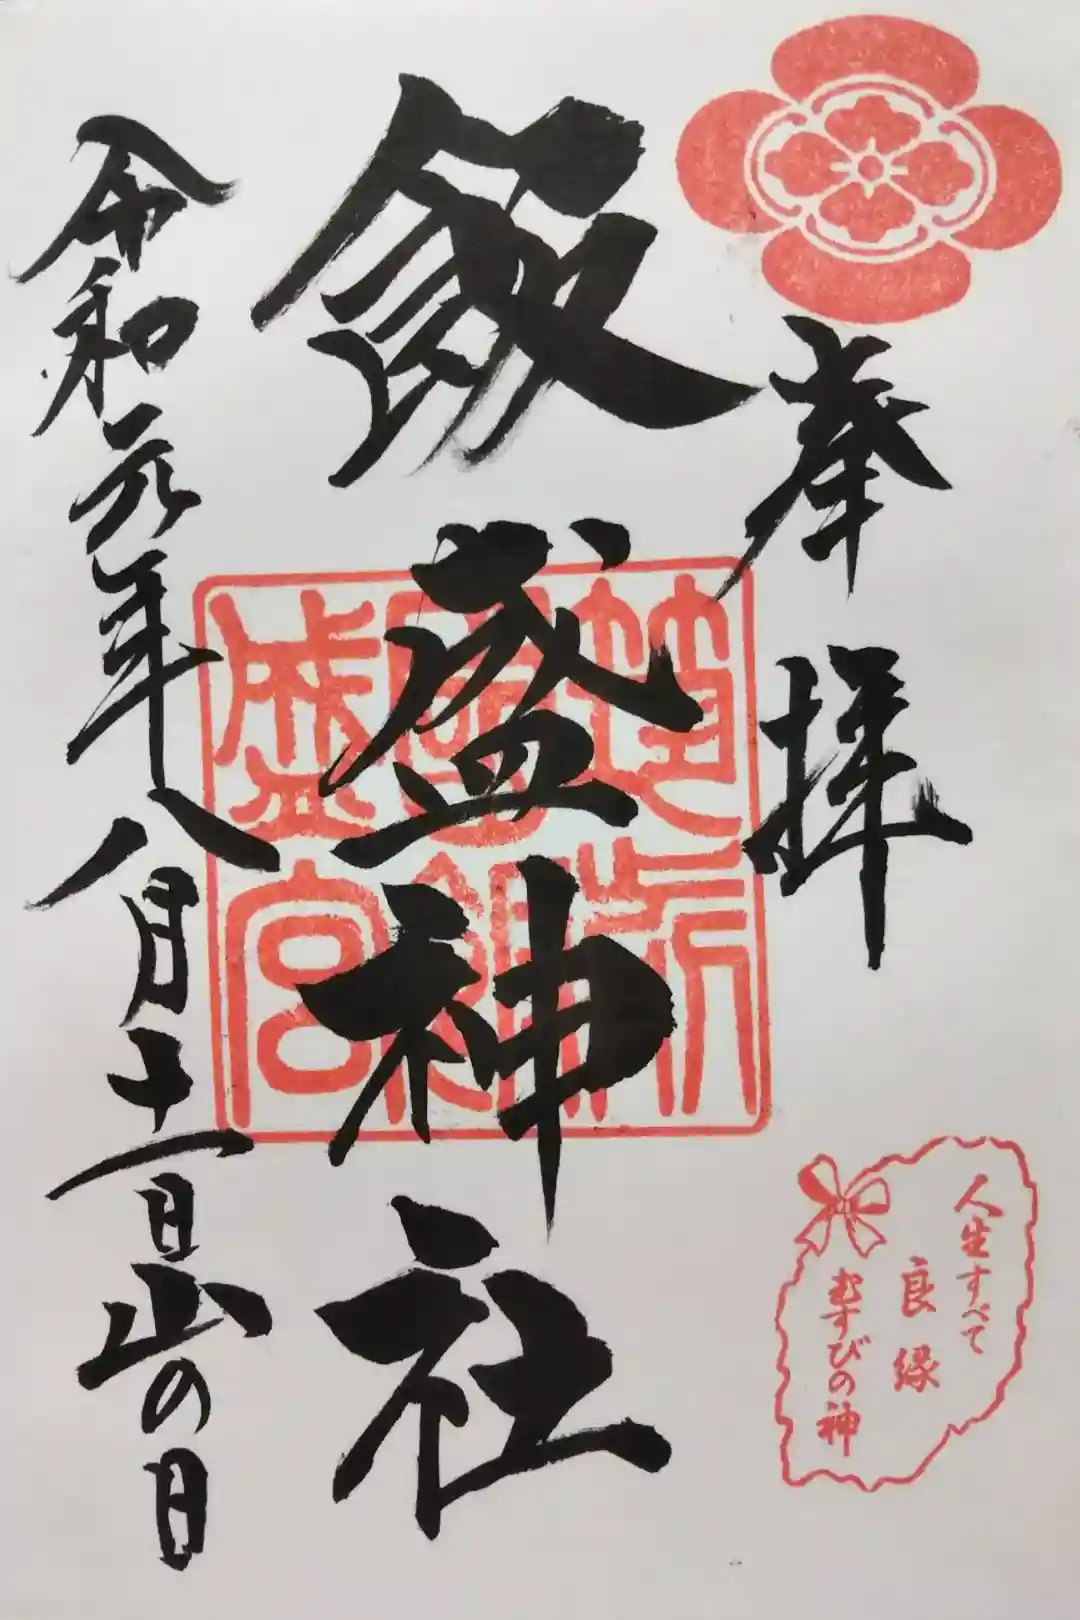 奉拝
飯盛神社
令和元年八月十一日山の日
人生すべて
良縁
むすびの神